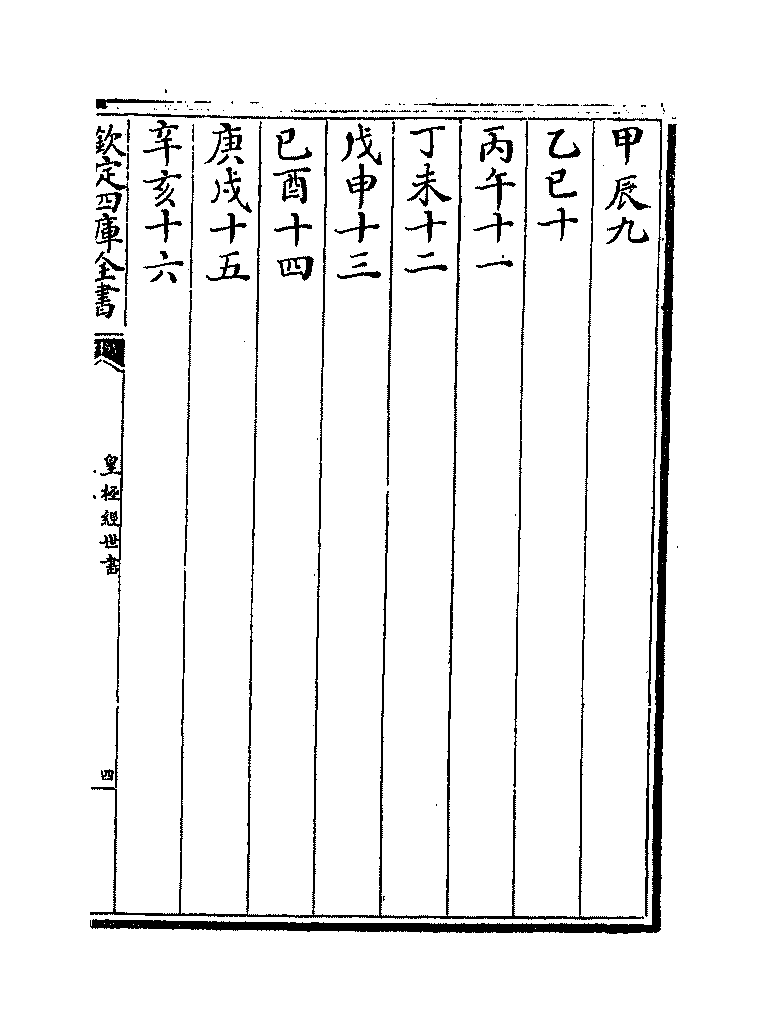 甲辰九
乙巳十
丙午十一
丁未十二
戊申十三
己酉十四
庚戌十五
辛亥十六
欽定四庫全書
皇極經世書
四